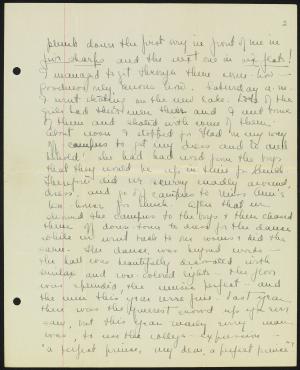 2
plunk down the first song in front of me in
five sharps and the next one in six flats!
I managed to get through them some how –
goodness only knows how. Saturday a.m.
I went skating on the new lake. Lots of the
girls had their men there and I met some
of them and skated with some of them.
About noon I stopped for Glad on my way
off campus to get my dress and to and
behold! she had had word from the boys
that they would be up in time for lunch
therefore and we scurry madly around,
dress, and go off campus to Miss Ann's
tea-house for lunch. After that we
around the campus to the boys & then chased
them off down town to dress for the dance
while we went back to our rooms & did the
same. The dance was beyond words –
the hall was beautifully decorated with
smilax and rose-colored lights – the floor
was splendid, the music perfect – and
the men this year were fine. Last year
there was the queerest crowd up you ever
saw, but this year nearly every man
was, to use the college expression –
"a perfect prince, my dear, a perfect prince"